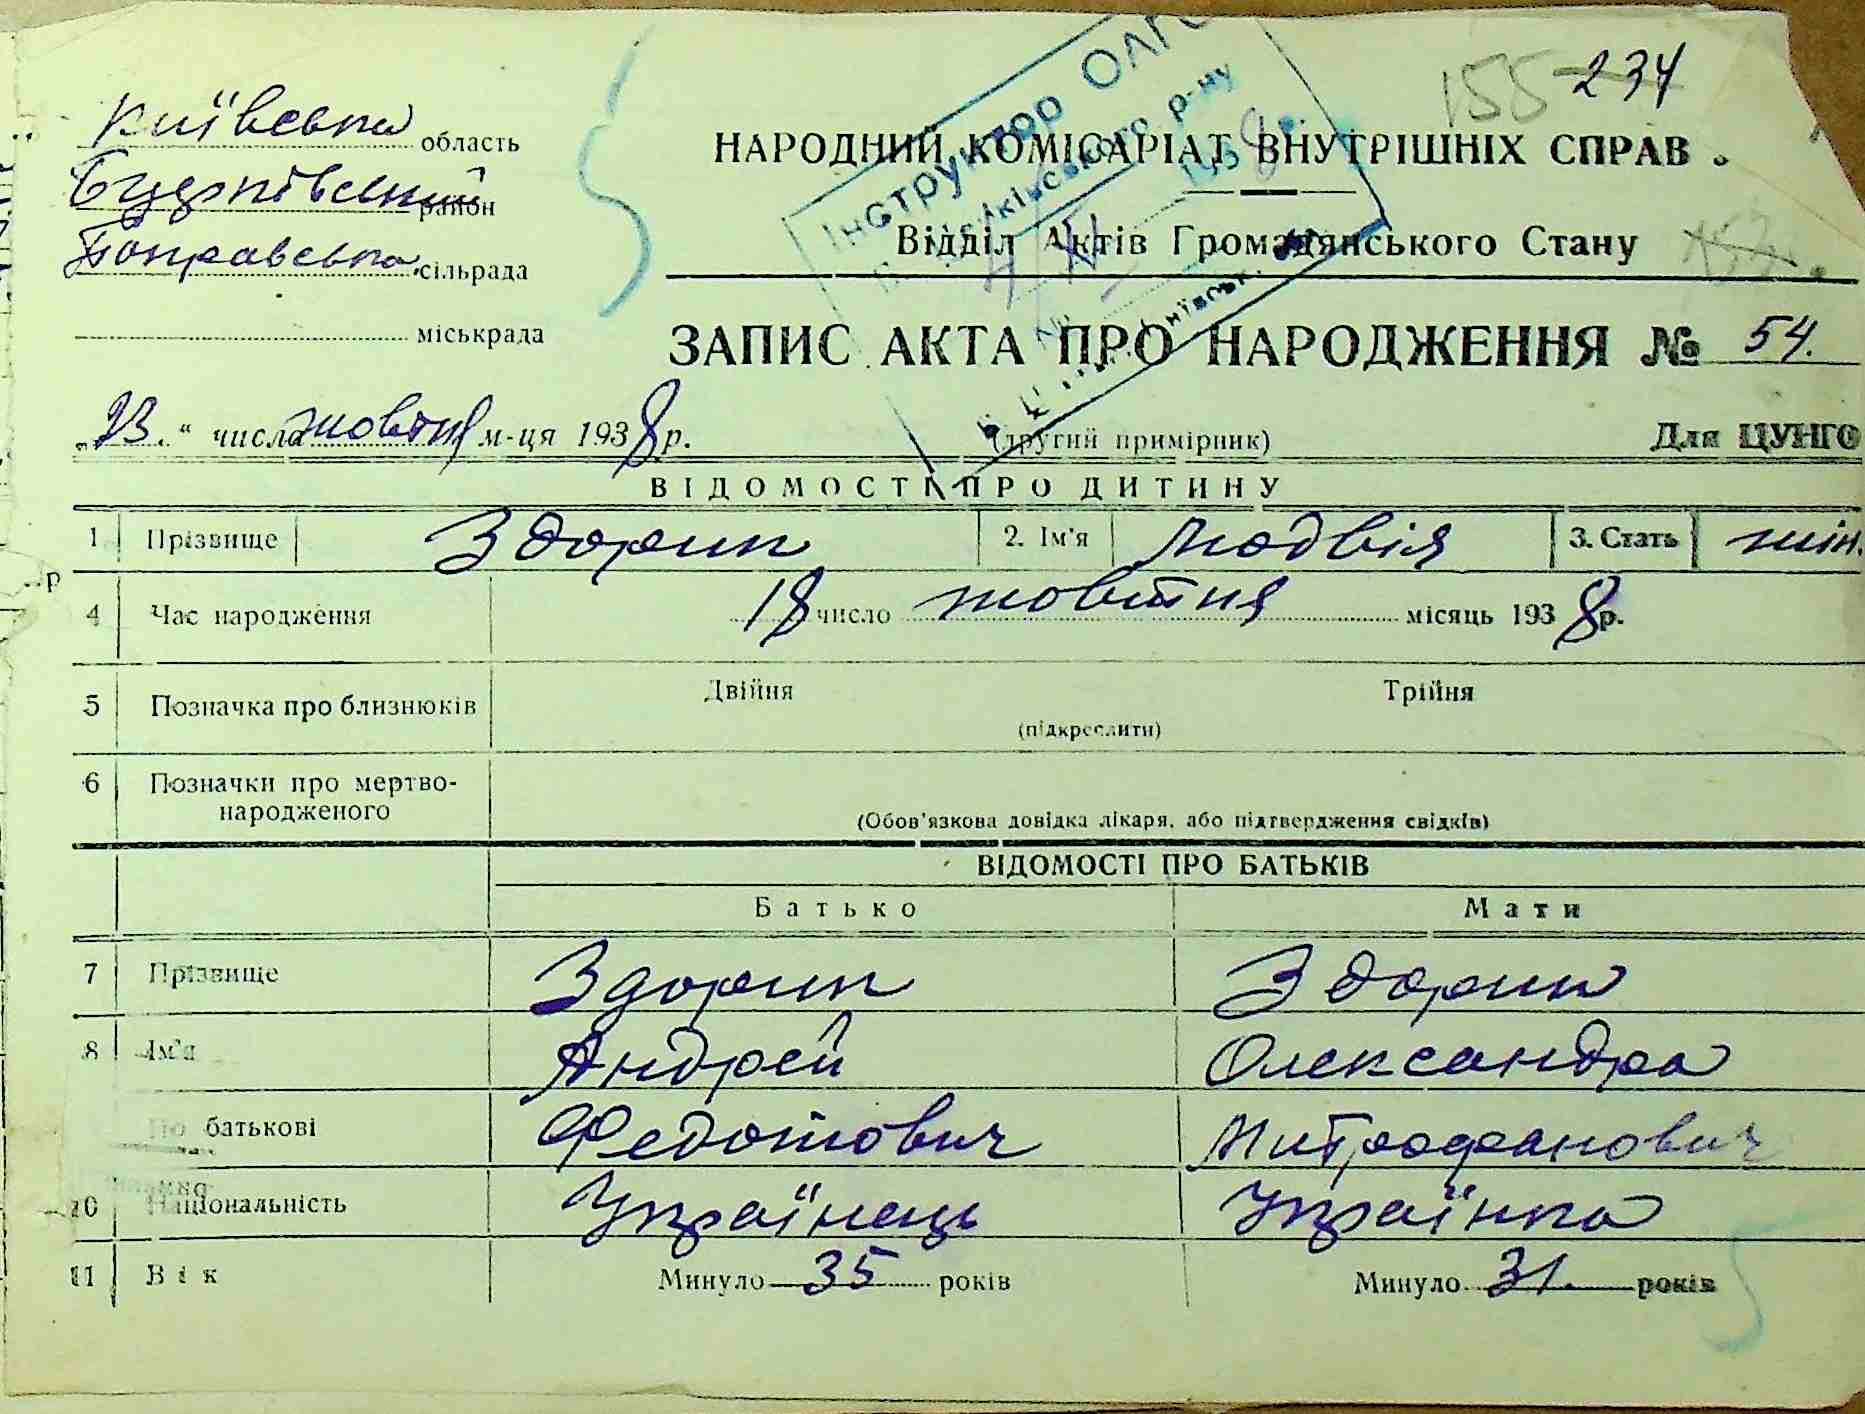 155 234
Київська область
НАРОДНИЙ КОМІСАРІАТ ВНУТРІШНІХ СПРАВ
район
Відділ Актів Громадянського Стану
сільрада
міськрада
ЗАПИС АКТА ПРО НАРОДЖЕННЯ № 54.
„23.“ числа жовтня м-ця 1938 р.
(другий примірник)
Для ЦУНГО
Інструктор
р-ну
ВІДОМОСТІ ПРО ДИТИНУ
1 Прізвище Здорик 2. Ім'я Людвія 3. Стать жін.
4 Час народження 18 число жовтня місяць 1938 р.
5 Позначка про близнюків Двійня Трійня
(підкреслити)
6 Позначки про мертво-
народженого
(Обов'язкова довідка лікаря, або підтвердження свідків)
ВІДОМОСТІ ПРО БАТЬКІВ
Батько Мати
7 Прізвище Здорик Здорик
8 Ім'я Андрей Олександра
По батькові Федотович Митрофанович
10 Національність Українець Українка
11 Вік Минуло 35 років Минуло 31. років